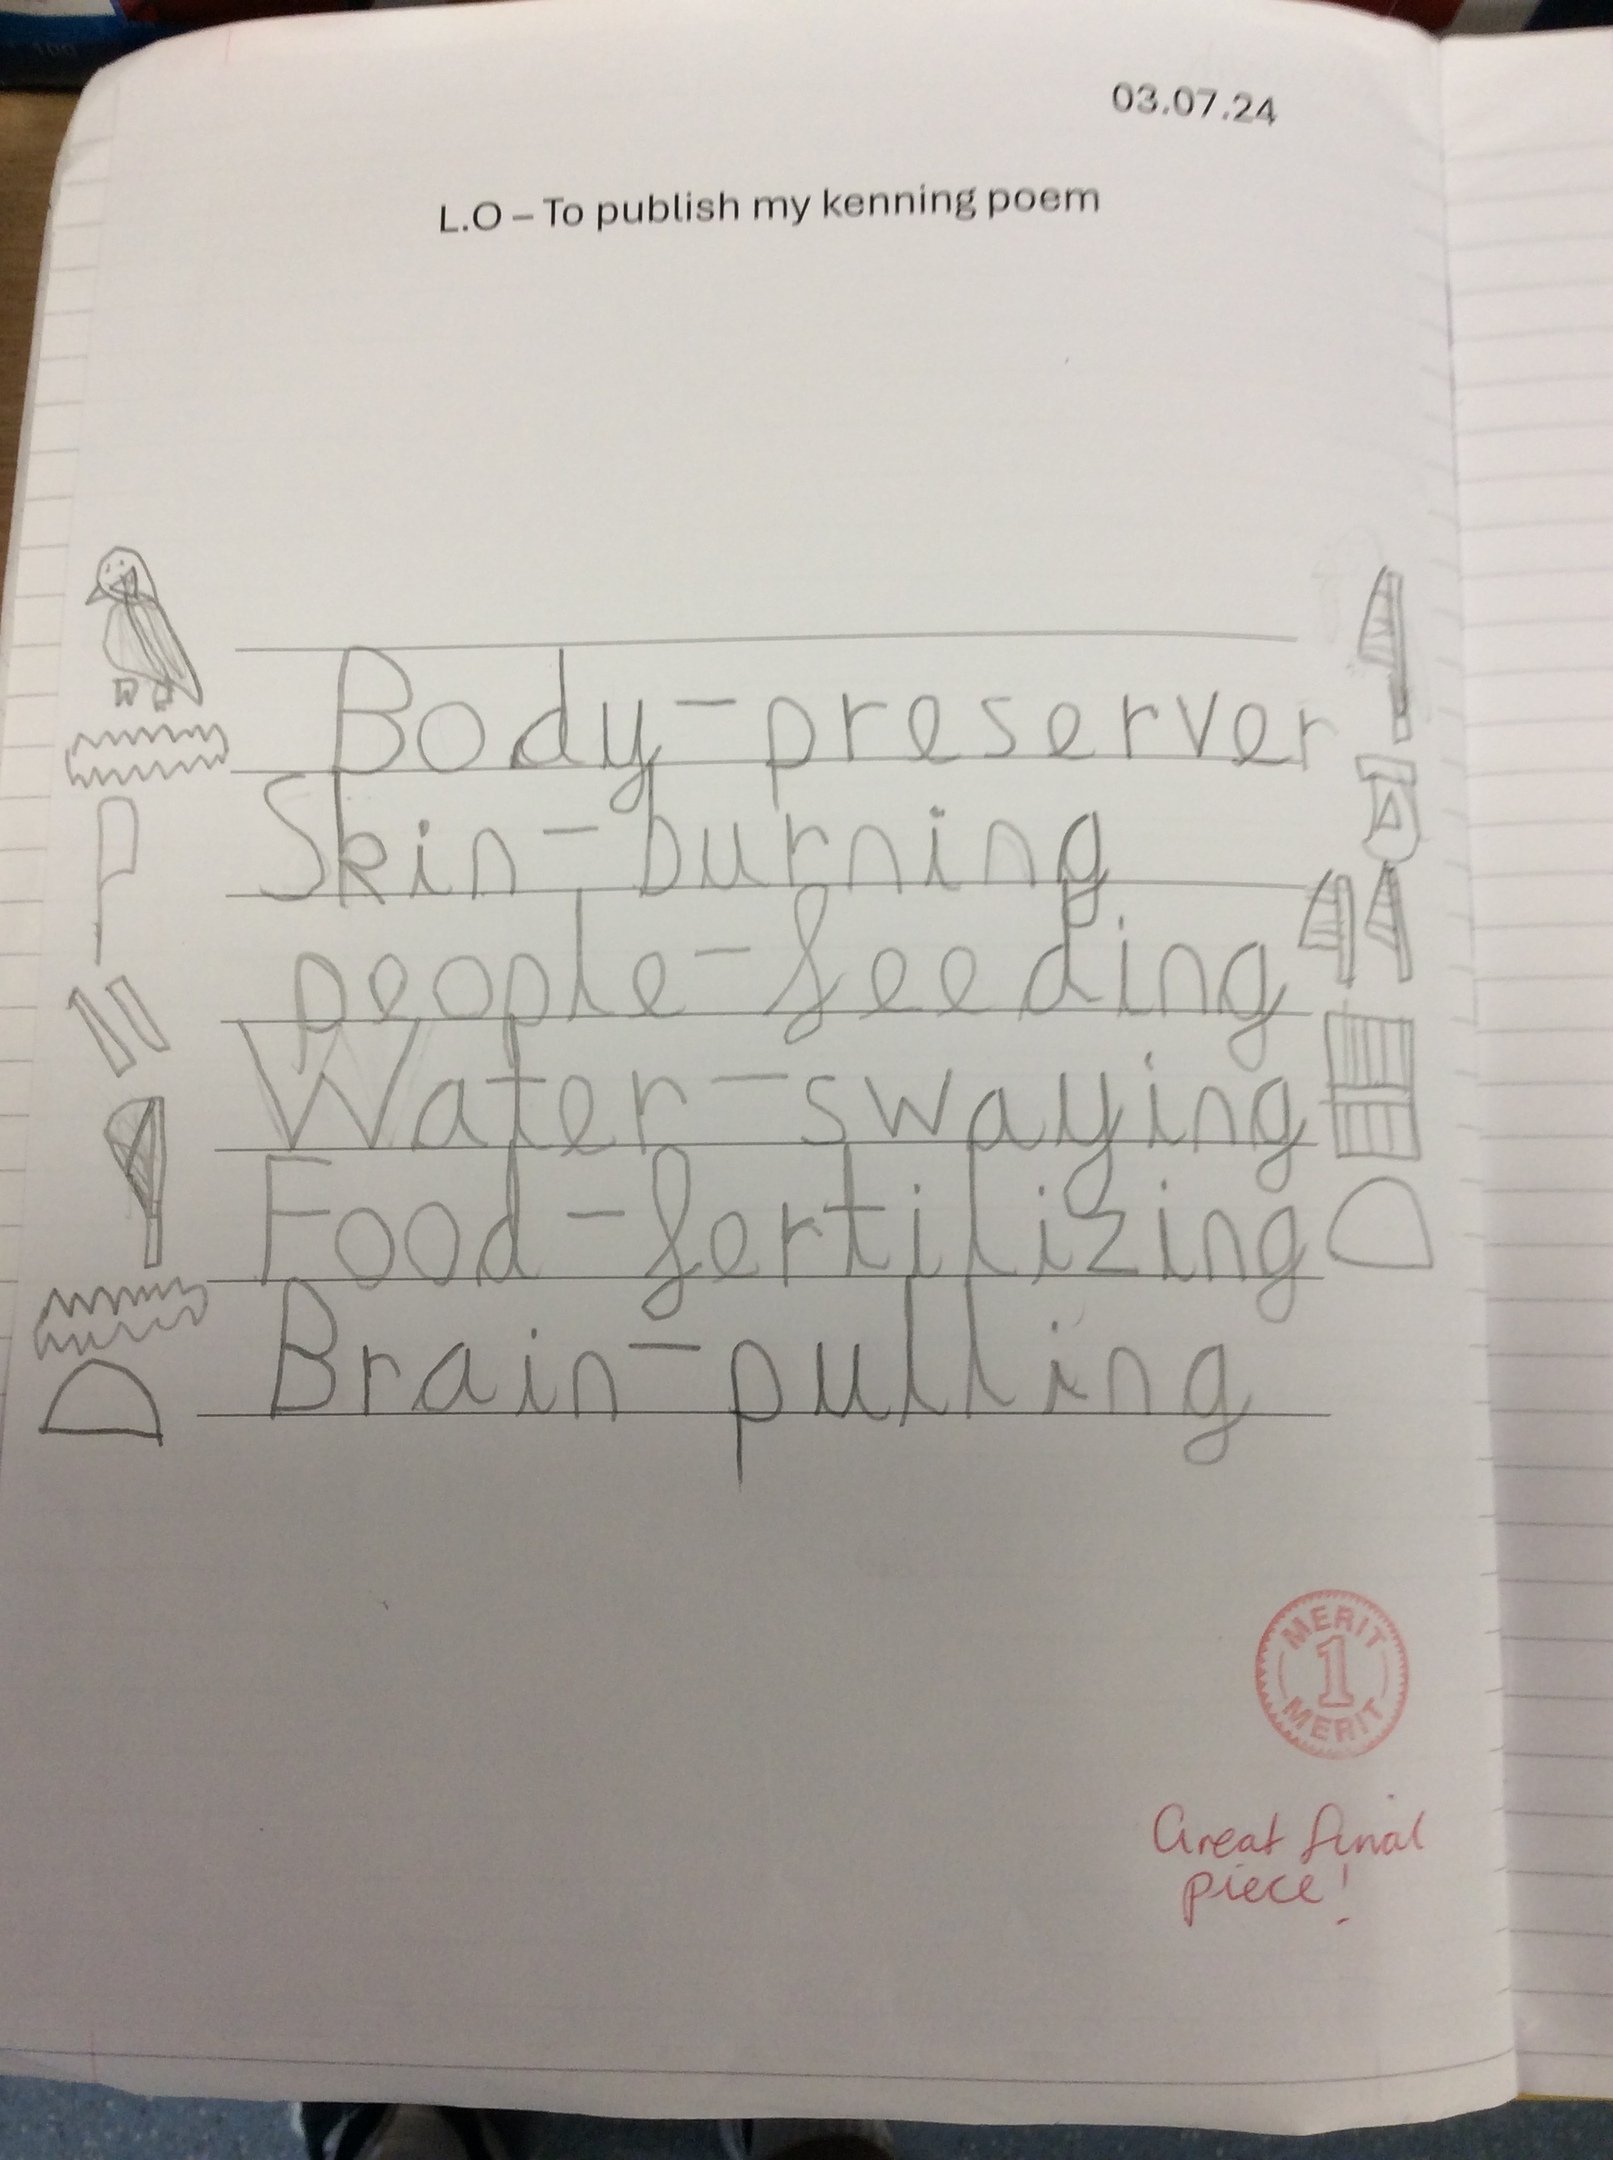 03.07.24
L.O – To publish my kenning poem
Body-preserver
Skin-burning
people-feeding
Water-swaying
Food-fertilizing
Brain-pulling
MERIT
1
MERIT
Great final
piece!